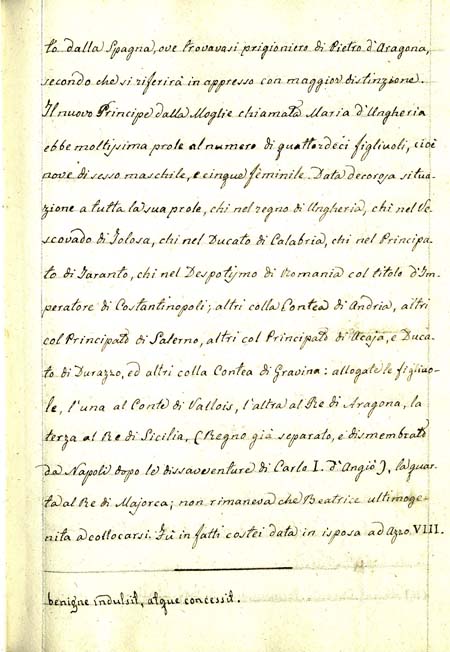 to dalla Spagna, ove trovavasi prigioniero di Pietro d'Aragona,
secondo che si riferirà in appresso con maggior distinzione.
Il nuovo Principe dalla Moglie chiamata Maria d'Ungheria
ebbe moltissima prole al numero di quattordeci figliuoli, cioè
nove di sesso maschile, e cinque feminile. Data decorosa situa-
zione a tutta la sua prole, chi nel regno di Ungheria, chi nel Ve-
scovado di Tolosa, chi nel Ducato di Calabria, chi nel Principa-
to di Taranto, chi nel Despotismo di Romania col titolo d'Im-
peratore di Costantinopoli; altri colla Contea di Andria, altri
col Principato di Salerno, altri col Principato di Acaja, e Duca-
to di Durazzo, ed altri colla Contea di Gravina: allogate le figliuo-
le, l'una al Conte di Vallois, l'altra al Re di Aragona, la
terza al Re di Sicilia, (Regno già separato, e dismembrato
da Napoli dopo le dissavventure di Carlo I. d'Angiò), la quar-
ta al Re di Majorca; non rimaneva che Beatrice ultimoge-
nita a collocarsi. Fù in fatti costei data in isposa ad Azzo VIII.
benigne indulsit, atque concessit.